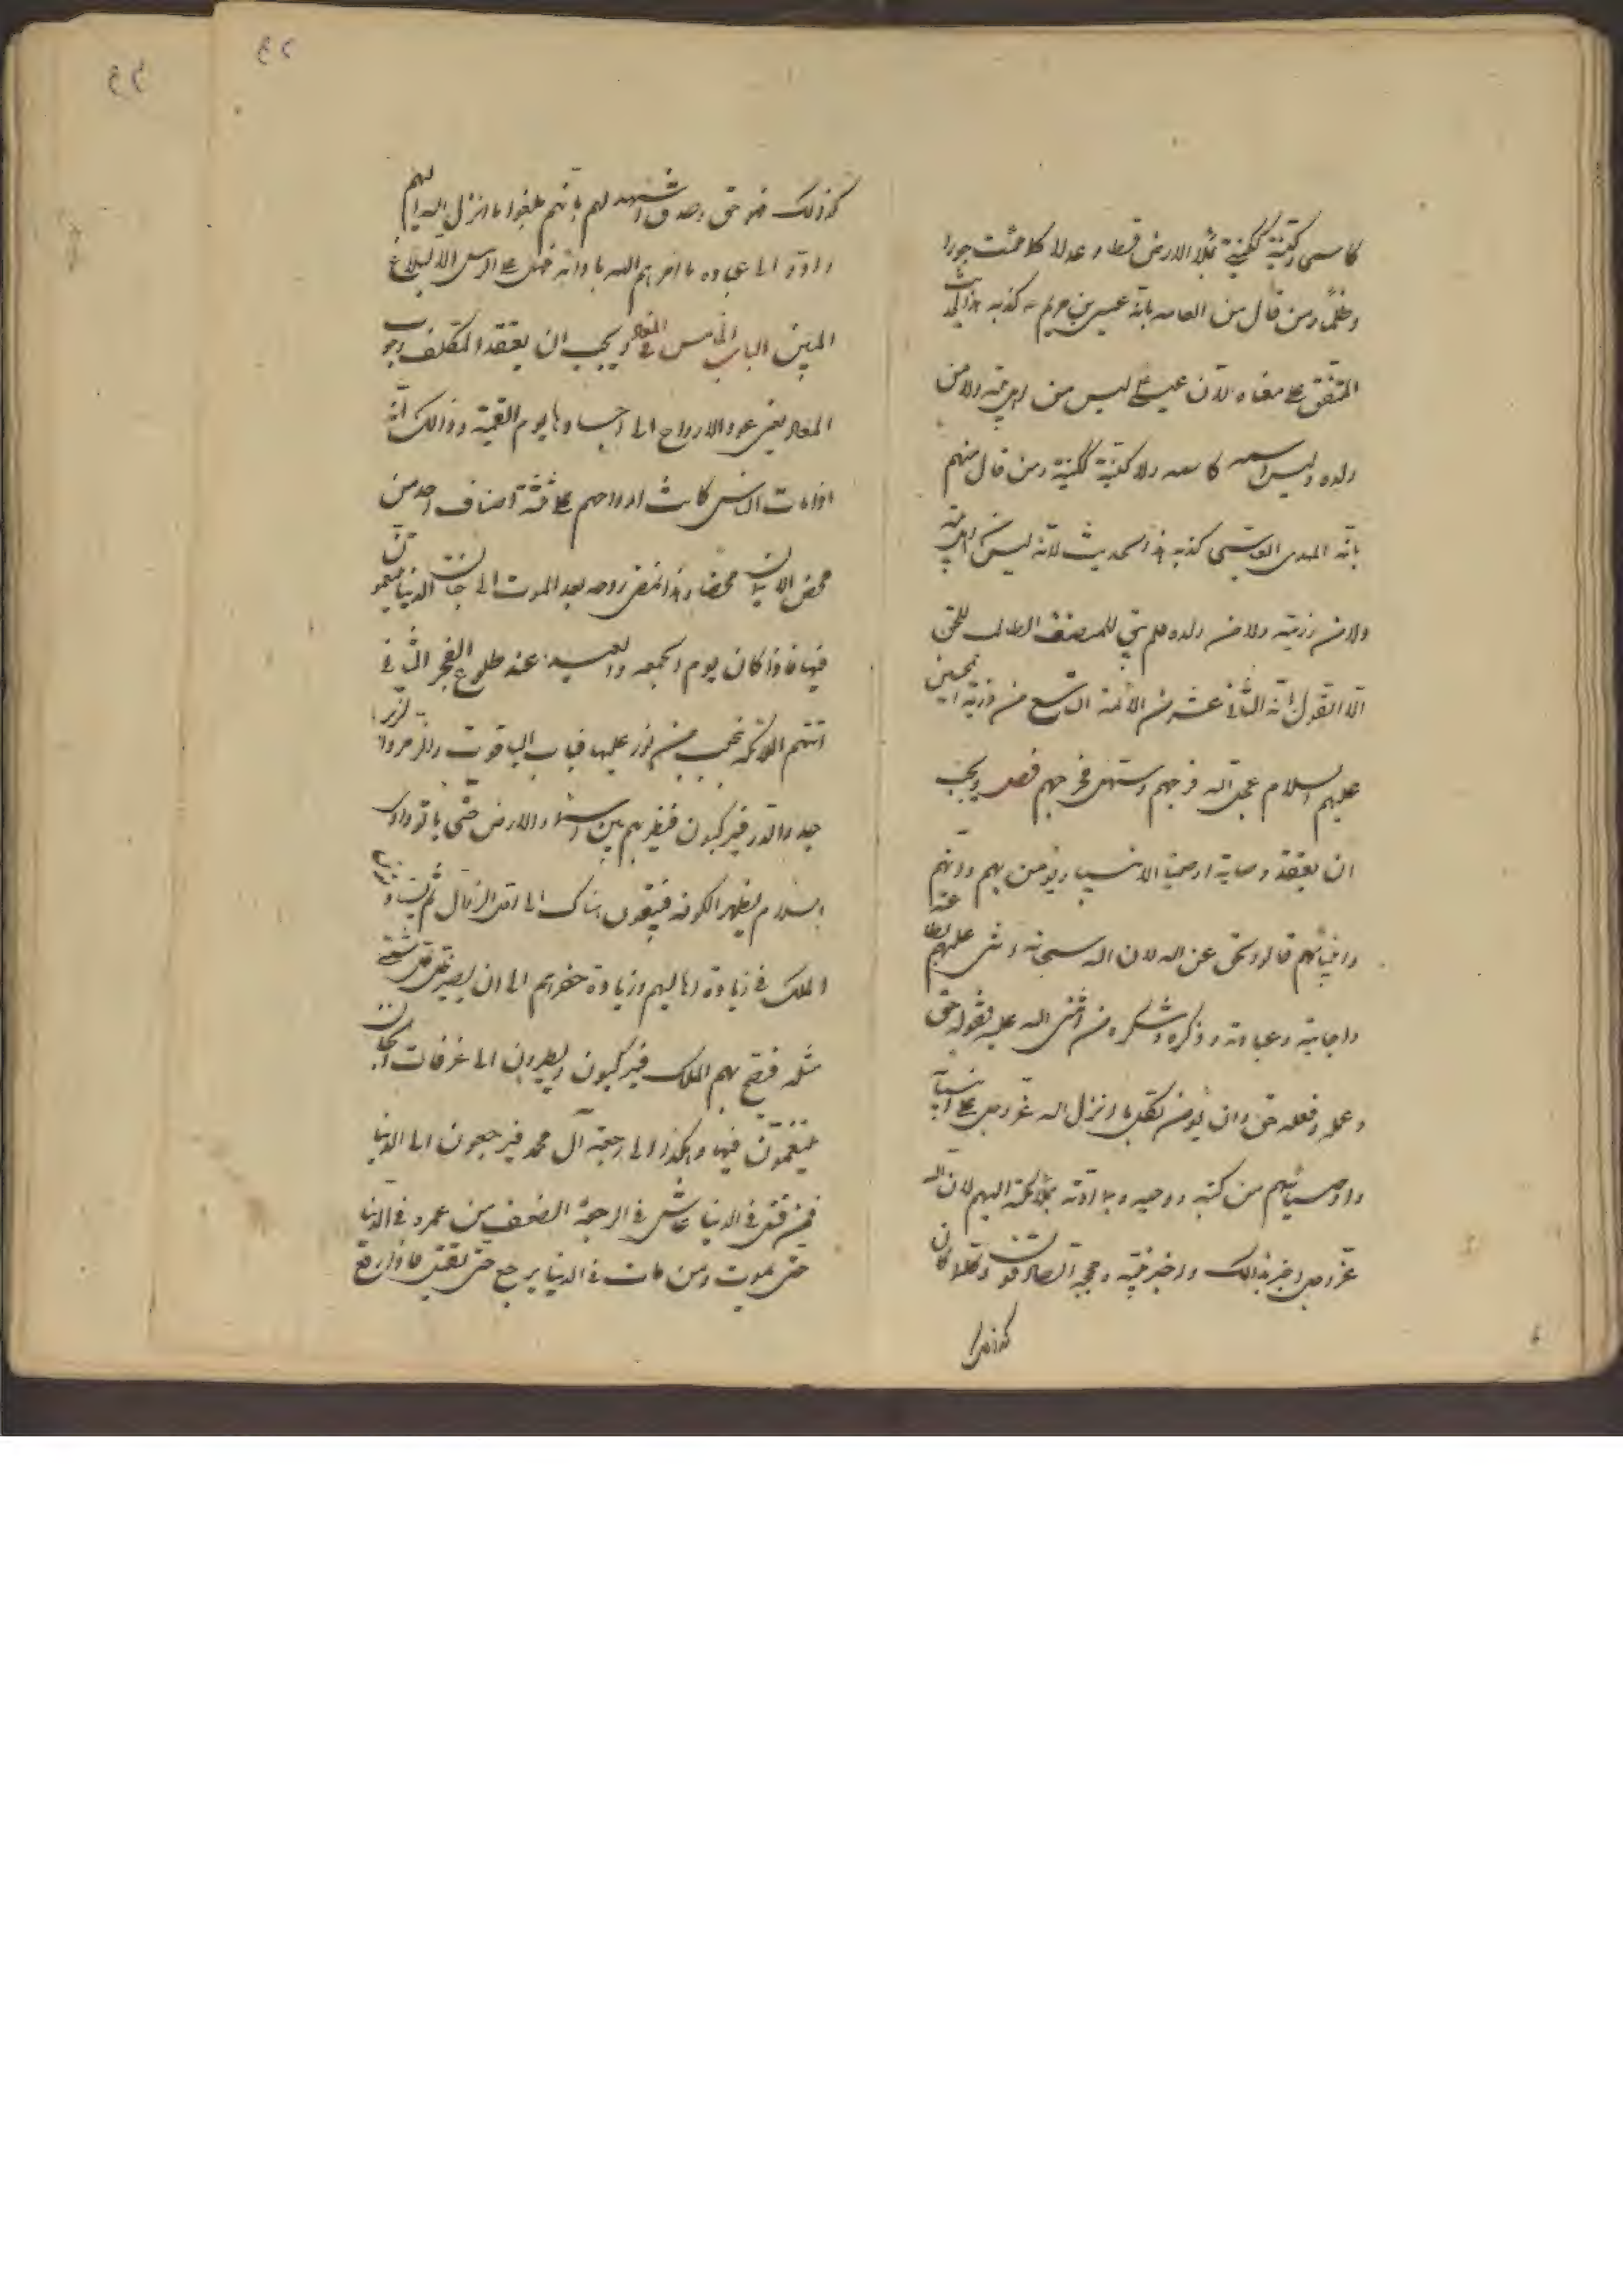 كاسمى وكنيته ككنيتى يملأ الارض قسطا وعدلا كما ملئت جورا
وظلما ومن قال من العامه بانه عيسى بن مريم ع كذبه هذا الحديث
المتفق على معناه لان عيسى ع ليس من اهل بيته ولا من
ولده وليس اسمه كاسمه ولا كنيته ككنيته ومن قال منهم
بانه المهدى العباسى كذبه هذا الحديث لانه ليس من اهل بيته
ولا من ذريته ولا من ولده فلم يبق للمنصف الطالب للحق
الا القول بانه الثانى عشر من الأئمة التاسع من ذرية الحسين
عليهم السلام عجل الله فرجهم وسهل مخرجهم فصل ويجب
ان يعتقد وصاية اوصياء الانبياء ويؤمن بهم وانهم
وانبيائهم قالوا الحق عن الله لان الله سبحانه اثنى عليهم بطاعته
واجابته وعبادته وذكره وشكره ومن اثنى الله عليه فقوله حق
وعمله وفعله حق وان يؤمن بكل ما انزل الله عز وجل على انبيائه
واوصيائهم من كتبه ووحيه وما ادته ملائكته اليهم لان الله
عز وجل اخبر بذلك واخبر نبيه وحججه الصادقون وكلما كان
كذلك
كذلك فهو حق وصدق اشهد لهم بانهم بلغوا ما انزل اليهم
وادوا الى عباده ما امرهم الله بادائه فهل على الرسل الا البلاغ
المبين الباب الخامس فى المعاد ويجب ان يعتقد المكلف وجوب
المعاد يعنى عود الارواح الى اجسادها يوم القيمة وذلك انه
اذا مات الناس كانت ارواحهم على ثلثة اصناف احد من
محض الايمان محضا وهذا تمضى روحه بعد الموت الى جنان الدنيا يتنعمون
فيها فاذا كان يوم الجمعه والعيد عند طلوع الفجر الثانى
اتتهم الملائكة بنجب من نور عليها قباب الياقوت والزمرد والزبر
جد والدر فيركبون فتطير بهم بين السماء والارض حتى ياتوا وادى
السلام بظهر الكوفه فيبقون هناك الى الزوال ثم يستاذنون
الملك فى زيارة اهاليهم وزيارة حفرهم الى ان يصير ظل كل شىء
مثله فيصيح بهم الملك فيركبون ويطيرون الى غرفات الجنان
يتنعمون فيها وهكذا الى رجعة آل محمد فيرجعون الى الدنيا
فمن قتل فى الدنيا عاش فى الرجعة الضعف من عمره فى الدنيا
حتى يموت ومن مات فى الدنيا يرجع حتى يقتل فاذا رفع